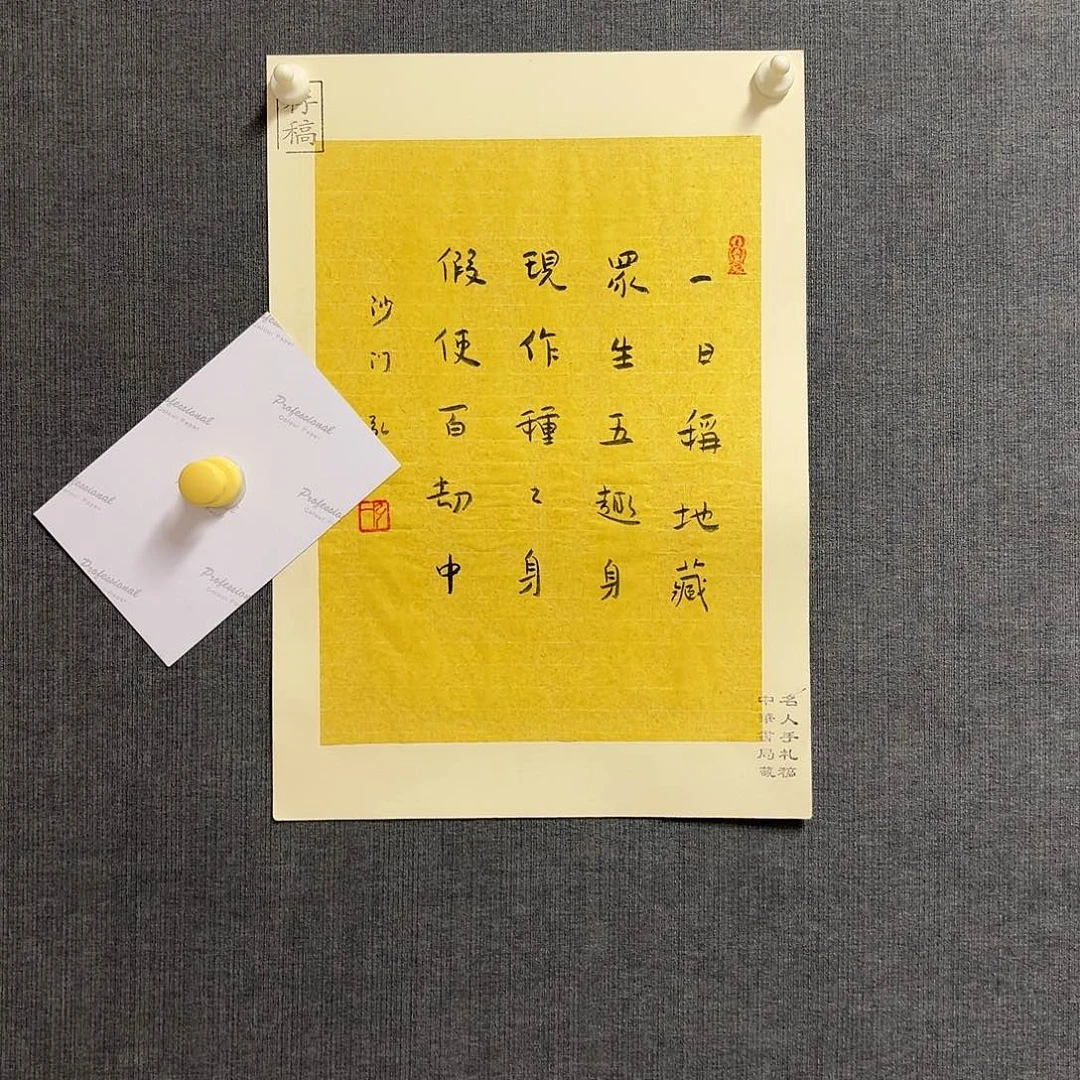 一日稱地藏
眾生五趣身
現作種〻身
假使百劫中
沙门弘
稿
名人手札稿
中華書局藏
Professional
Colour Paper
Professional
Professional
Colour Paper
Professional